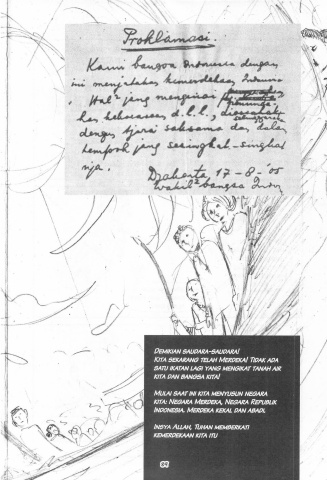 Proklamasi.
Kami bangsa Indonesia dengan
ini menjatakan kemerdekaan Indonesia
Hal² jang mengenai
kekoeasaan d.l.l., diselenggarakan
dengan tjara saksama dan dalam
tempoh jang sesingkat-singkat
nja.
Djakarta, 17-8-'05
Wakil² bangsa Indon
DEMIKIAN SAUDARA-SAUDARA!
KITA SEKARANG TELAH MERDEKA! TIDAK ADA
SATU IKATAN LAGI YANG MENGIKAT TANAH AIR
KITA DAN BANGSA KITA!
MULAI SAAT INI KITA MENYUSUN NEGARA
KITA! NEGARA MERDEKA, NEGARA REPUBLIK
INDONESIA. MERDEKA KEKAL DAN ABADI.
INSYA ALLAH, TUHAN MEMBERKATI
KEMERDEKAAN KITA ITU
64